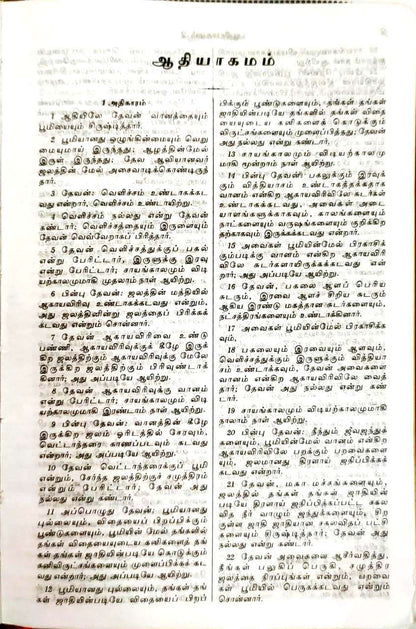 ஆதியாகமம்
1 அதிகாரம்
1 ஆதியிலே தேவன் வானத்தையும்
பூமியையும் சிருஷ்டித்தார்.
2 பூமியானது ஒழுங்கின்மையும் வெறு
மையுமாய் இருந்தது; ஆழத்தின்மேல்
இருள் இருந்தது; தேவ ஆவியானவர்
ஜலத்தின் மேல் அசைவாடிக்கொண்டிருந்
தார்.
3 தேவன்: வெளிச்சம் உண்டாகக்கட
வது என்றார், வெளிச்சம் உண்டாயிற்று.
4 வெளிச்சம் நல்லது என்று தேவன்
கண்டார்; வெளிச்சத்தையும் இருளையும்
தேவன் வெவ்வேறாகப் பிரித்தார்.
5 தேவன் வெளிச்சத்துக்குப் பகல்
என்று பேரிட்டார், இருளுக்கு இரவு
என்று பேரிட்டார்; சாயங்காலமும் விடி
யற்காலமுமாகி முதலாம் நாள் ஆயிற்று.
6 பின்பு தேவன்: ஜலத்தின் மத்தியில்
ஆகாயவிரிவு உண்டாகக்கடவது என்றும்,
அது ஜலத்தினின்று ஜலத்தைப் பிரிக்கக்
கடவது என்றும் சொன்னார்.
7 தேவன் ஆகாயவிரிவை உண்டு
பண்ணி, ஆகாயவிரிவுக்குக் கீழே இருக்
கிற ஜலத்திற்கும் ஆகாயவிரிவுக்கு மேலே
இருக்கிற ஜலத்திற்கும் பிரிவுண்டாக்
கினார்; அது அப்படியே ஆயிற்று.
8 தேவன் ஆகாயவிரிவுக்கு வானம்
என்று பேரிட்டார்; சாயங்காலமும் விடி
யற்காலமுமாகி இரண்டாம் நாள் ஆயிற்று.
9 பின்பு தேவன்: வானத்தின் கீழே
இருக்கிற ஜலம் ஓரிடத்தில் சேரவும்,
வெட்டாந்தரை காணப்படவும் கடவது
என்றார்; அது அப்படியே ஆயிற்று.
10 தேவன் வெட்டாந்தரைக்குப் பூமி
என்றும், சேர்ந்த ஜலத்திற்குச் சமுத்திரம்
என்றும் பேரிட்டார்; தேவன் அது
நல்லது என்று கண்டார்.
11 அப்பொழுது தேவன்: பூமியானது
புல்லையும், விதையைப் பிறப்பிக்கும்
பூண்டுகளையும், பூமியின் மேல் தங்களில்
தங்கள் விதையையுடைய கனிகளைத் தங்
கள் தங்கள் ஜாதியின்படியே கொடுக்கும்
கனிவிருட்சங்களையும் முளைப்பிக்கக் கட
வது என்றார்; அது அப்படியே ஆயிற்று.
12 பூமியானது புல்லையும், தங்கள் தங்
கள் ஜாதியின்படியே விதையைப் பிறப்
பிக்கும் பூண்டுகளையும், தங்கள் தங்கள்
ஜாதியின்படியே தங்களில் தங்கள் விதை
யையுடைய கனிகளைக் கொடுக்கும்
விருட்சங்களையும் முளைப்பித்தது; தேவன்
அது நல்லது என்று கண்டார்.
13 சாயங்காலமும் விடியற்காலமு
மாகி மூன்றாம் நாள் ஆயிற்று.
14 பின்பு தேவன்: பகலுக்கும் இரவுக்
கும் வித்தியாசம் உண்டாகத்தக்கதாக
வானம் என்கிற ஆகாயவிரிவிலே சுடர்கள்
உண்டாகக்கடவது, அவைகள் அடை
யாளங்களுக்காகவும், காலங்களையும்
நாட்களையும் வருஷங்களையும் குறிக்கிற
தற்காகவும் இருக்கக்கடவது என்றார்.
15 அவைகள் பூமியின்மேல் பிரகாசிக்
கும்படிக்கு வானம் என்கிற ஆகாயவிரி
விலே சுடர்களாயிருக்கக்கடவது என்
றார்; அது அப்படியே ஆயிற்று.
16 தேவன், பகலை ஆளப் பெரிய
சுடரும், இரவை ஆளச் சிறிய சுடரும்
ஆகிய இரண்டு மகத்தான சுடர்களையும்,
நட்சத்திரங்களையும் உண்டாக்கினார்.
17 அவைகள் பூமியின்மேல் பிரகாசிக்க
வும்,
18 பகலையும் இரவையும் ஆளவும்,
வெளிச்சத்துக்கும் இருளுக்கும் வித்தியா
சம் உண்டாக்கவும், தேவன் அவைகளை
வானம் என்கிற ஆகாயவிரிவிலே வைத்
தார்; தேவன் அது நல்லது என்று கண்
டார்.
19 சாயங்காலமும் விடியற்காலமுமாகி
நாலாம் நாள் ஆயிற்று.
20 பின்பு தேவன்: நீந்தும் ஜீவஜந்துக்
களையும், பூமியின்மேல் வானம் என்கிற
ஆகாயவிரிவிலே பறக்கும் பறவைகளை
யும், ஜலமானது திரளாய் ஜநிப்பிக்கக்
கடவது என்றார்.
21 தேவன், மகா மச்சங்களையும்,
ஜலத்தில் தங்கள் தங்கள் ஜாதியின்
படியே திரளாய் ஜநிப்பிக்கப்பட்ட சகல
வித நீர் வாழும் ஜந்துக்களையும், சிற
குள்ள ஜாதி ஜாதியான சகலவிதப் பட்சி
களையும் சிருஷ்டித்தார்; தேவன் அது
நல்லது என்று கண்டார்.
22 தேவன் அவைகளை ஆசீர்வதித்து,
நீங்கள் பலுகிப் பெருகி, சமுத்திர
ஜலத்தை நிரப்புங்கள் என்றும், பறவை
கள் பூமியில் பெருகக்கடவது என்றும்
சொன்னார்.